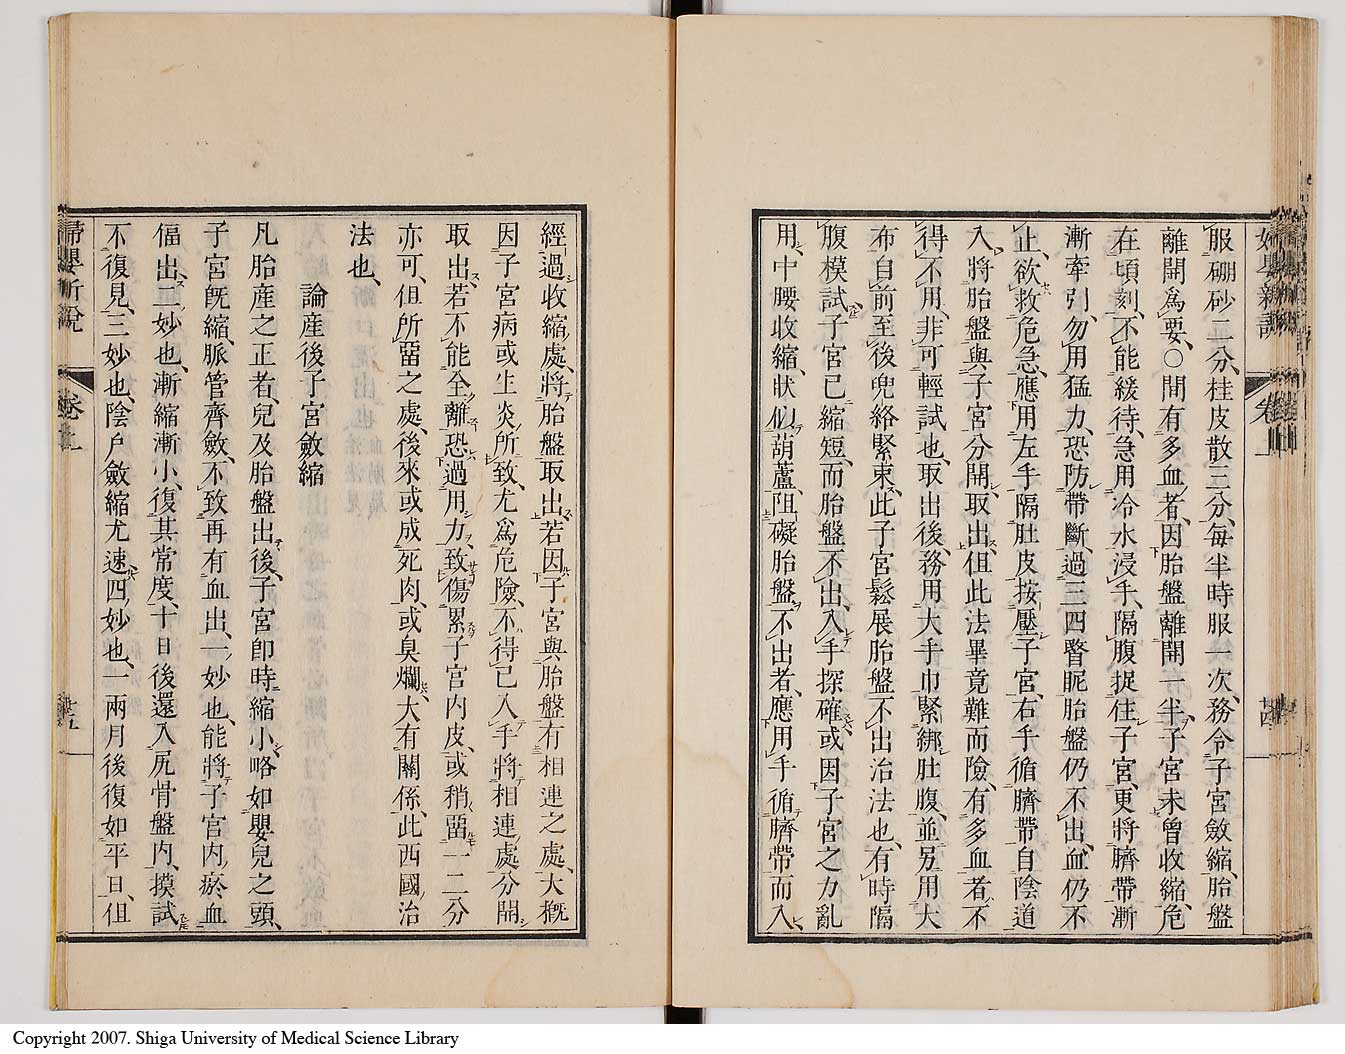 婦嬰新說
卷上
廿四
服硼砂二分、桂皮散三分、每半時服一次、務令子宮斂縮、胎盤
離開爲要、〇間有多血者、因胎盤離開一半、子宮未曾收縮、危
在頃刻、不能緩待、急用冷水浸手、隔腹捉住子宮、更將臍帶漸
漸牽引、勿用猛力、恐防帶斷、過三四瞥眤胎盤仍不出、血仍不
止、欲救危急、應用左手隔肚皮按壓子宮、右手循臍帶自陰道
入、將胎盤與子宮分開取出、但此法畢竟難而險、有多血者、不
得不用、非可輕試也、取出後、務用大手巾緊綁肚腹、並另用大
布自前至後兜絡緊束、此子宮鬆展胎盤不出治法也、有時隔
腹模試子宮已縮短、而胎盤不出、入手探確、或因子宮之力亂
用、中腰收縮、狀似葫蘆、阻礙胎盤不出者、應用手循臍帶而入、
經過收縮處、將胎盤取出、若因子宮與胎盤有相連之處、大槪
因子宮病或生炎所致、尤爲危險、不得已入手將相連處分開
取出、若不能全離、恐過用力、致傷累子宮內皮、或稍畱一二分
亦可、但所畱之處、後來或成死肉、或臭爛、大有關係、此西國治
法也、
論產後子宮斂縮
凡胎產之正者、兒及胎盤出後、子宮卽時縮小、略如嬰兒之頭、
子宮旣縮、脈管齊斂、不致再有血出、一妙也、能將子宮內瘀血
偪出、二妙也、漸縮漸小、復其常度、十日後還入尻骨盤內、摸試
不復見、三妙也、陰戶斂縮尤速、四妙也、一兩月後復如平日、但
婦嬰新說
卷上
廿五
Copyright 2007. Shiga University of Medical Science Library